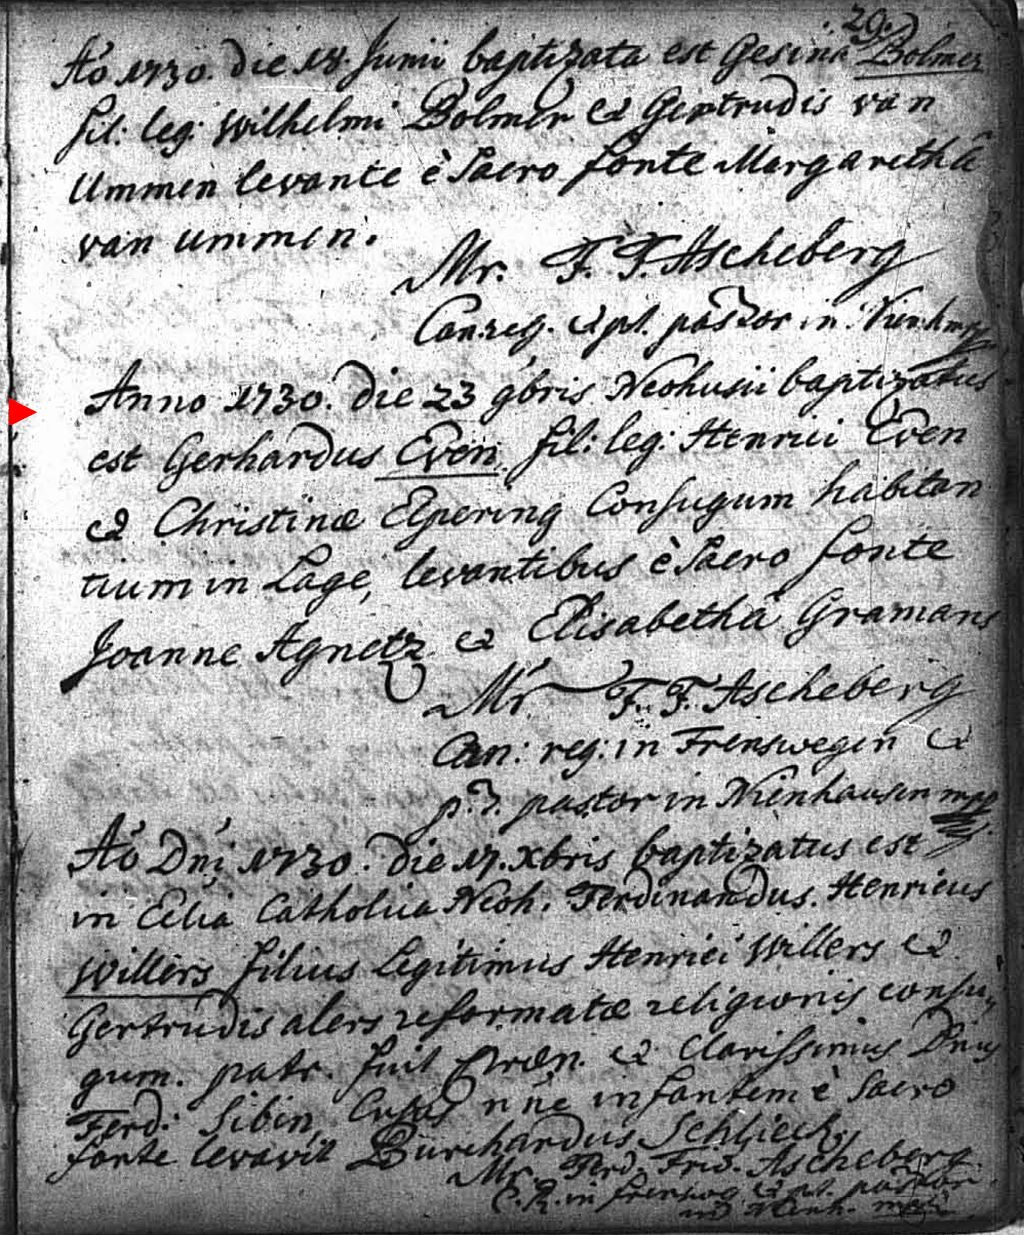 29.
Aõ 1730. die 18. Junii baptizata est Gesina Bolmer
fil: leg: Wilhelmi Bolmer & Gertrudis van
Ummen levante è Sacro fonte Margarethâ
van Ummen.
Mr. F. F. Ascheberg
Can. reg. & p.t. pastor in Nienh. mpp
Anno 1730. die 23 9bris Neohusii baptizatus
est Gerhardus Even fil: leg: Henrici Even
& Christinæ Elpering Conjugum habitan
tium in Lage, levantibus è Sacro fonte
Joanne Agnetz & Elisabetha Gramans
Mr. F. F. Ascheberg
Can: reg: in Frenswegen &
p.t. pastor in Nienhausen mpp
Aõ Dni 1730. die 17. Xbris baptizatus est
in Eclia Catholica Neoh. Ferdinandus Henricus
Willers filius Legitimus Henrici Willers &
Gertrudis alers reformatæ religionis conju
gum. patr. fuit & clarissimus Dnus
Ferd: Sibin, Cujus nñe infantem è Sacro
fonte levavit Burchardus Schliech.
Mr. Ferd. Frid. Ascheberg
C. R. in frensweg & p.t. pastor
in Nienh. mpp